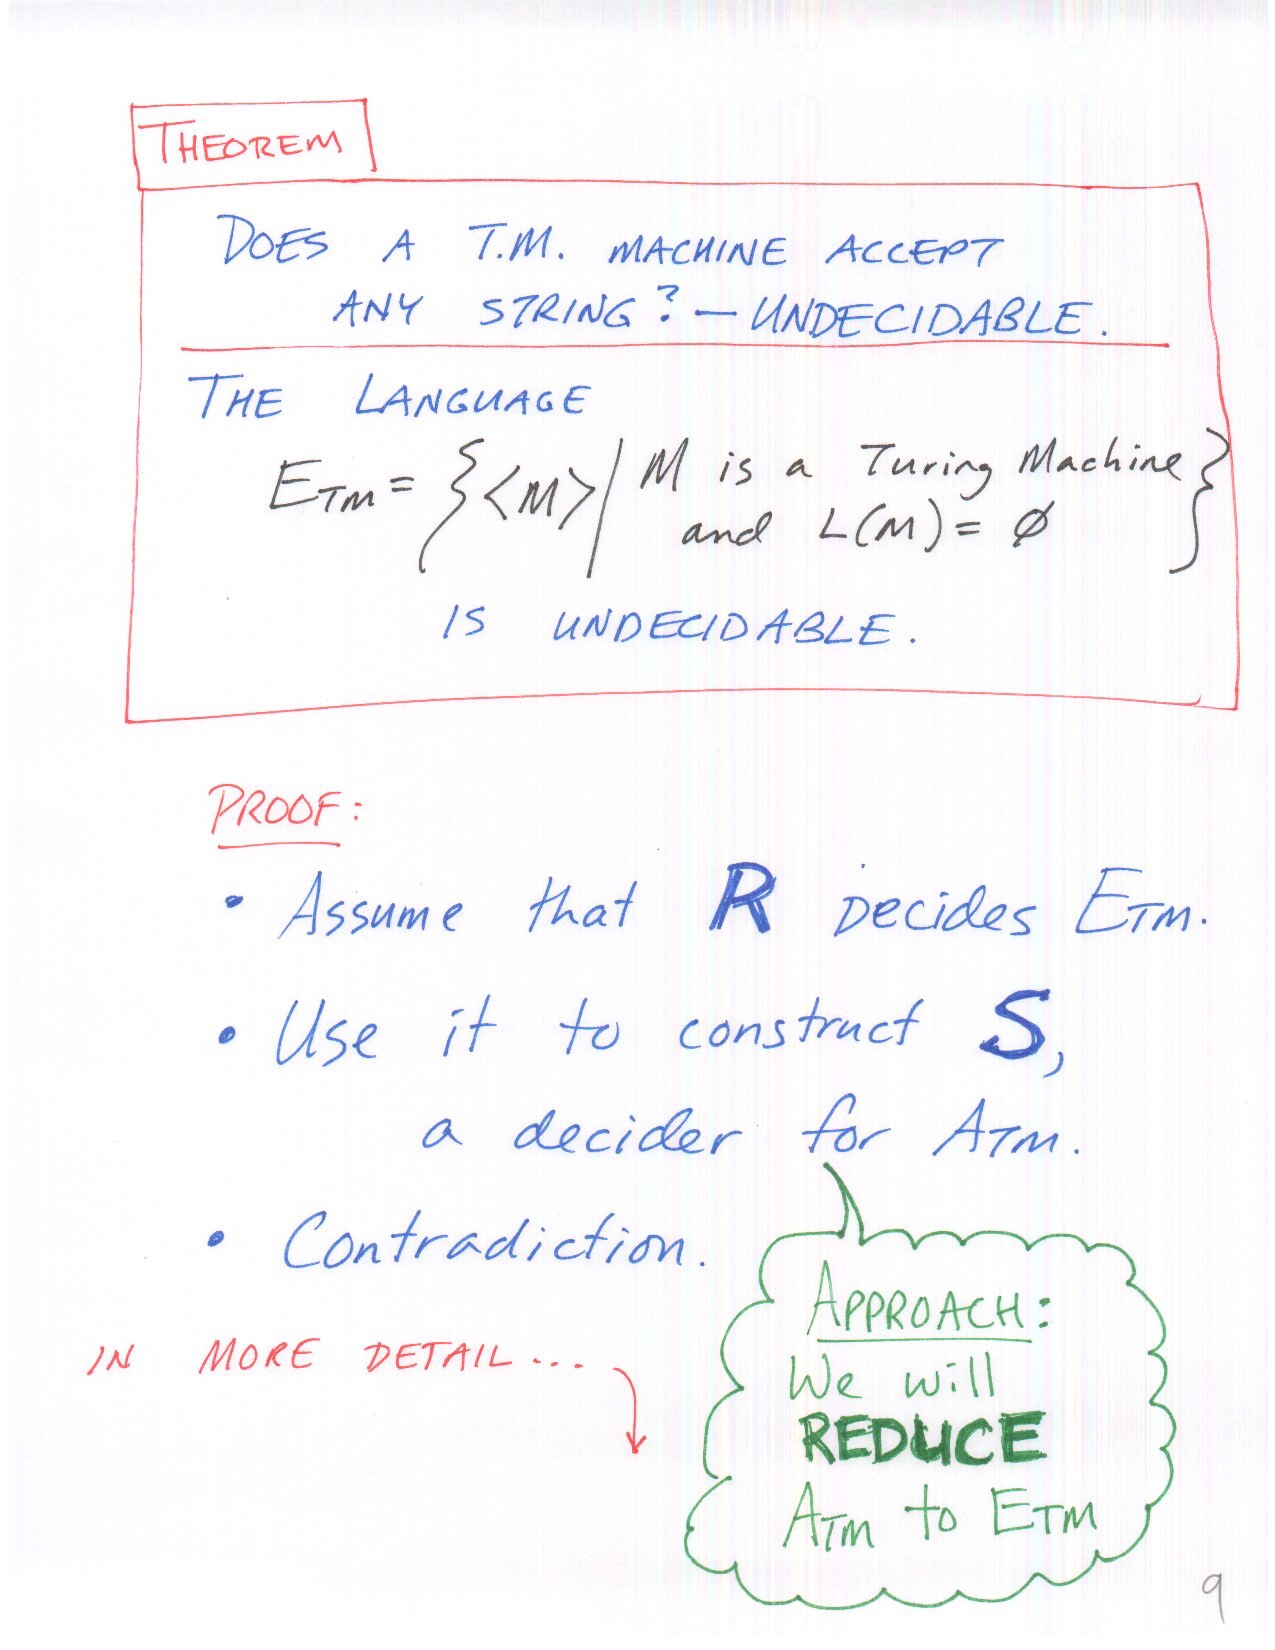 THEOREM
DOES A T.M. MACHINE ACCEPT
ANY STRING? — UNDECIDABLE.
THE LANGUAGE
E_TM = {<M> | M is a Turing Machine
and L(M) = ∅}
IS UNDECIDABLE.
PROOF:
• Assume that R Decides E_TM.
• Use it to construct S,
a decider for A_TM.
• Contradiction.
APPROACH:
We will
REDUCE
A_TM to E_TM
IN MORE DETAIL...
9